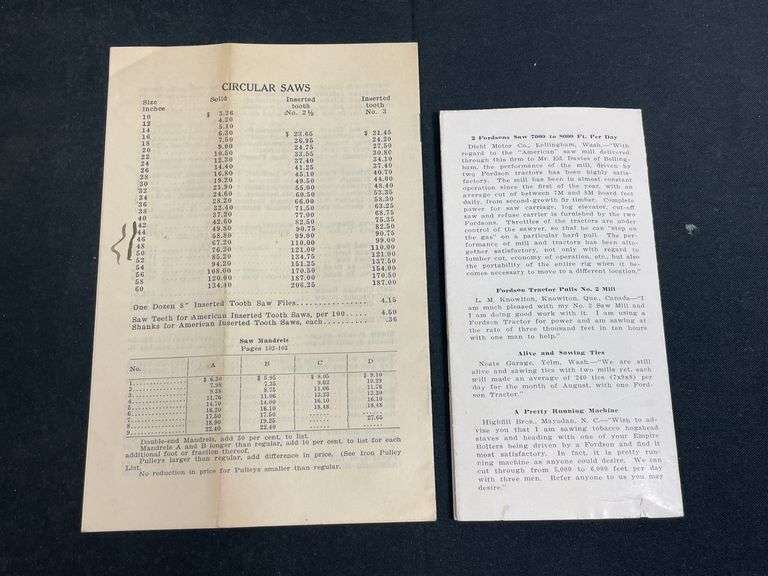 CIRCULAR SAWS
Size Inches Solid Inserted tooth No. 2½ Inserted tooth No. 3
10 $ 3.36
12 4.20
14 5.10
16 6.30 $ 23.65 $ 21.45
18 7.50 26.95 24.20
20 9.00 24.75 27.50
22 10.50 33.55 30.80
24 12.30 37.40 34.10
26 14.40 41.25 37.40
28 16.80 45.10 40.70
30 19.50 49.50 44.00
32 21.90 55.00 48.40
34 24.60 60.50 53.35
36 28.20 66.00 58.30
38 32.40 71.50 63.25
40 37.20 77.00 68.75
42 42.60 82.50 75.35
44 49.80 90.75 82.50
46 58.80 99.00 90.75
48 67.20 110.00 99.00
50 76.20 121.00 110.00
52 85.20 134.75 121.00
54 94.20 151.25 137.50
56 108.00 170.50 154.00
58 120.00 187.00 170.50
60 134.40 206.25 187.00
One Dozen 5" Inserted Tooth Saw Files 4.15
Saw Teeth for American Inserted Tooth Saws, per 100 4.50
Shanks for American Inserted Tooth Saws, each .36
Saw Mandrels
Pages 102-103
No. A B C D
1 $ 6.30 $ 5.95 $ 8.05 $ 9.10
Double-end Mandrels, add 50 per cent, to list.
Mandrels A and B longer than regular, add 10 per cent. to list for each
additional foot or fraction thereof.
Pulleys larger than regular, add difference in price. (See Iron Pulley
List.
No reduction in price for Pulleys smaller than regular.
2 Fordsons Saw 7000 to 8000 Ft. Per Day
Diehl Motor Co., Bellingham, Wash.—"With
regard to the "American" saw mill delivered
through this firm to Mr. Ed. Davies of Belling-
ham, the performance of the mill, driven by
two Fordson tractors has been highly satis-
factory. The mill has been in almost constant
operation since the first of the year, with an
average cut of between 7M and 8M board feet
daily, from second-growth fir timber. Complete
power for saw carriage, log elevator, cut-off
saw and refuse carrier is furnished by the two
Fordsons. Throttles of the tractors are under
control of the sawyer, so that he can "step on
the gas" on a particular hard pull. The per-
formance of mill and tractors has been alto-
gether satisfactory, not only with regard to
lumber cut, economy of operation, etc., but also
the portability of the entire rig when it be-
comes necessary to move to a different location."
Fordson Tractor Pulls No. 2 Mill
L. M. Knowlton, Knowlton, Que., Canada—"I
am much pleased with my No. 2 Saw Mill and
I am doing good work with it. I am using a
Fordson Tractor for power and am sawing at
the rate of three thousand feet in ten hours
with one man to help."
Alive and Sawing Ties
Neats Garage, Yelm, Wash—"We are still
alive and sawing ties with two mills yet, each
will made an average of 240 ties (7x9x8) per
day for the month of August, with one Ford-
son Tractor."
A Pretty Running Machine
Highfill Bros., Mayodan, N. C.—"Wish to ad-
vise you that I am sawing tobacco hogshead
staves and heading with one of your Empire
Bolters being driven by a Fordson and find it
most satisfactory. In fact, it is pretty run-
ning machine as anyone could desire. We can
cut through from 5,000 to 6,000 feet per day
with three men. Refer anyone to us you may
desire."